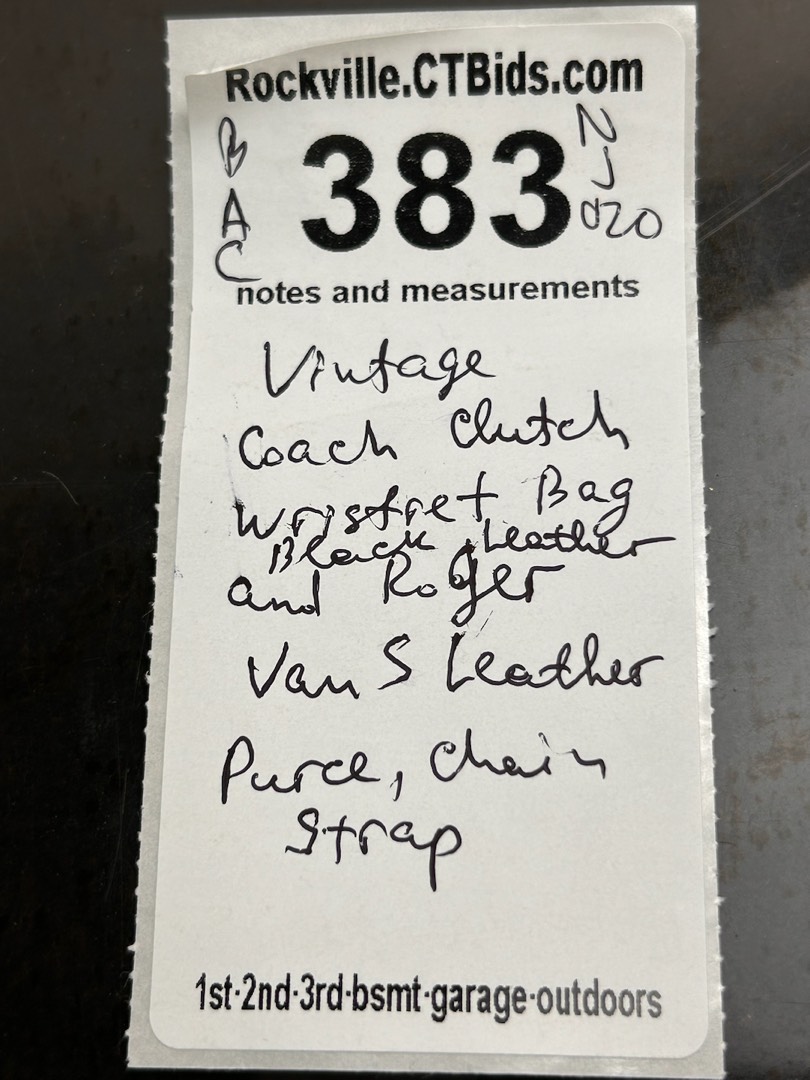 Rockville.CTBids.com
B
A
C
383
notes and measurements
Vintage
Coach Clutch
Wristret Bag
Black Leather
and Roger
Van S Leather
Purce, Chain
Strap
1st·2nd·3rd·bsmt·garage·outdoors